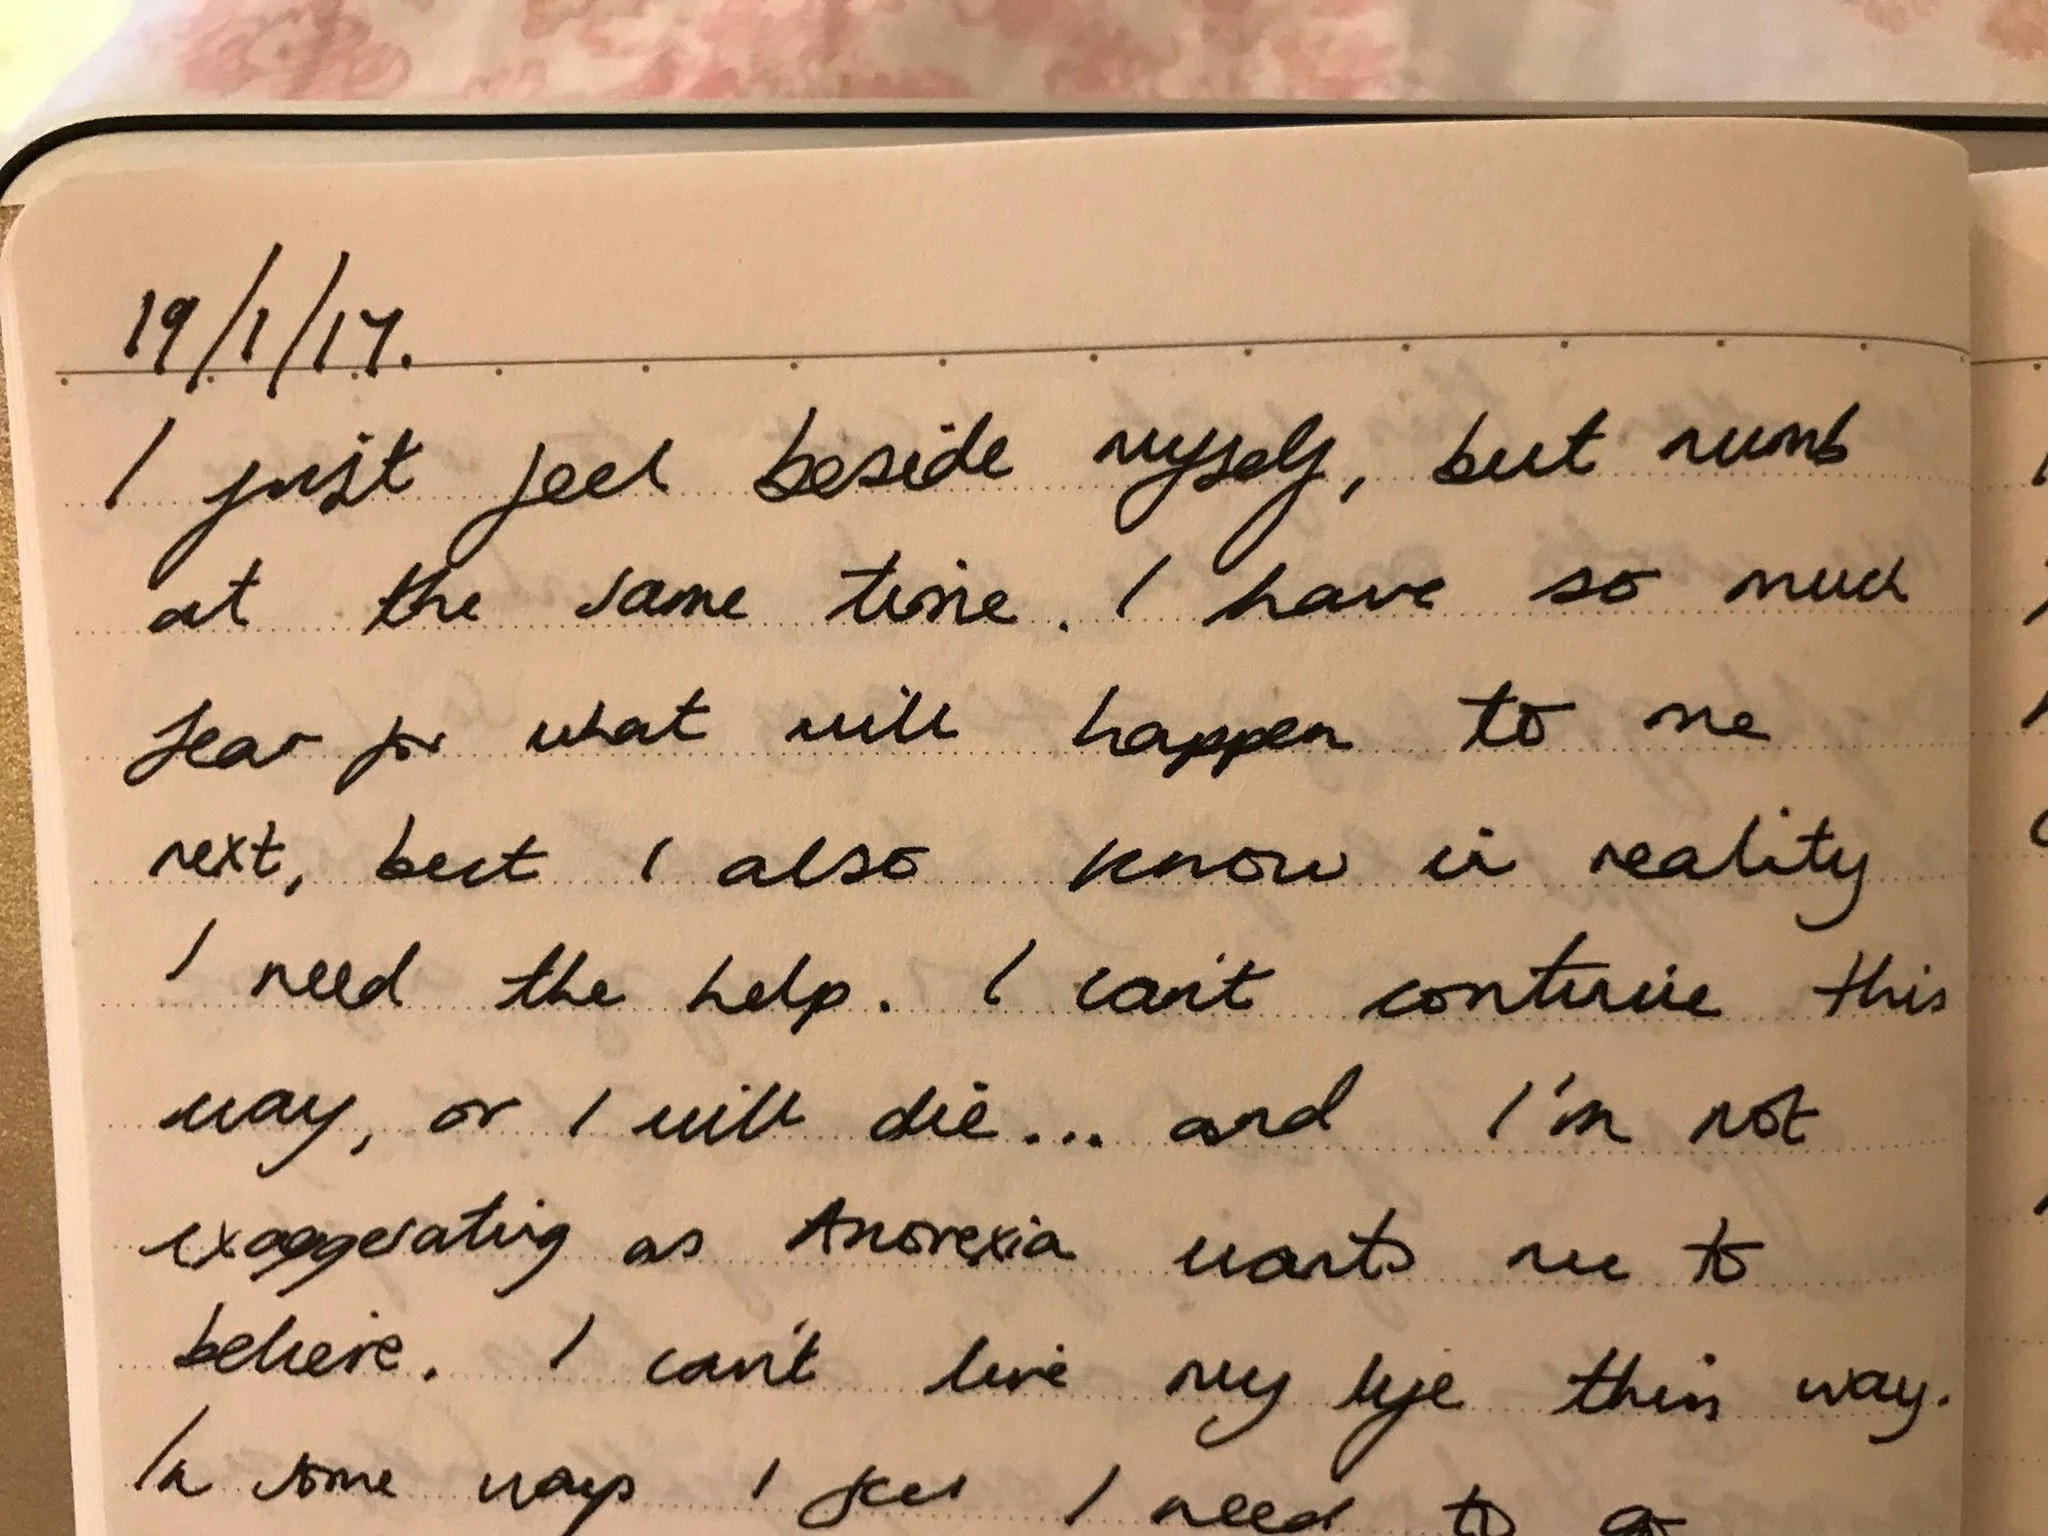 19/1/17.
I just feel beside myself, but numb
at the same time. I have so much
fear for what will happen to me
next, but I also know in reality
I need the help. I can't continue this
way, or I will die... and I'm not
exaggerating as Anorexia wants me to
believe. I can't live my life this way.
In some ways I feel I need to go